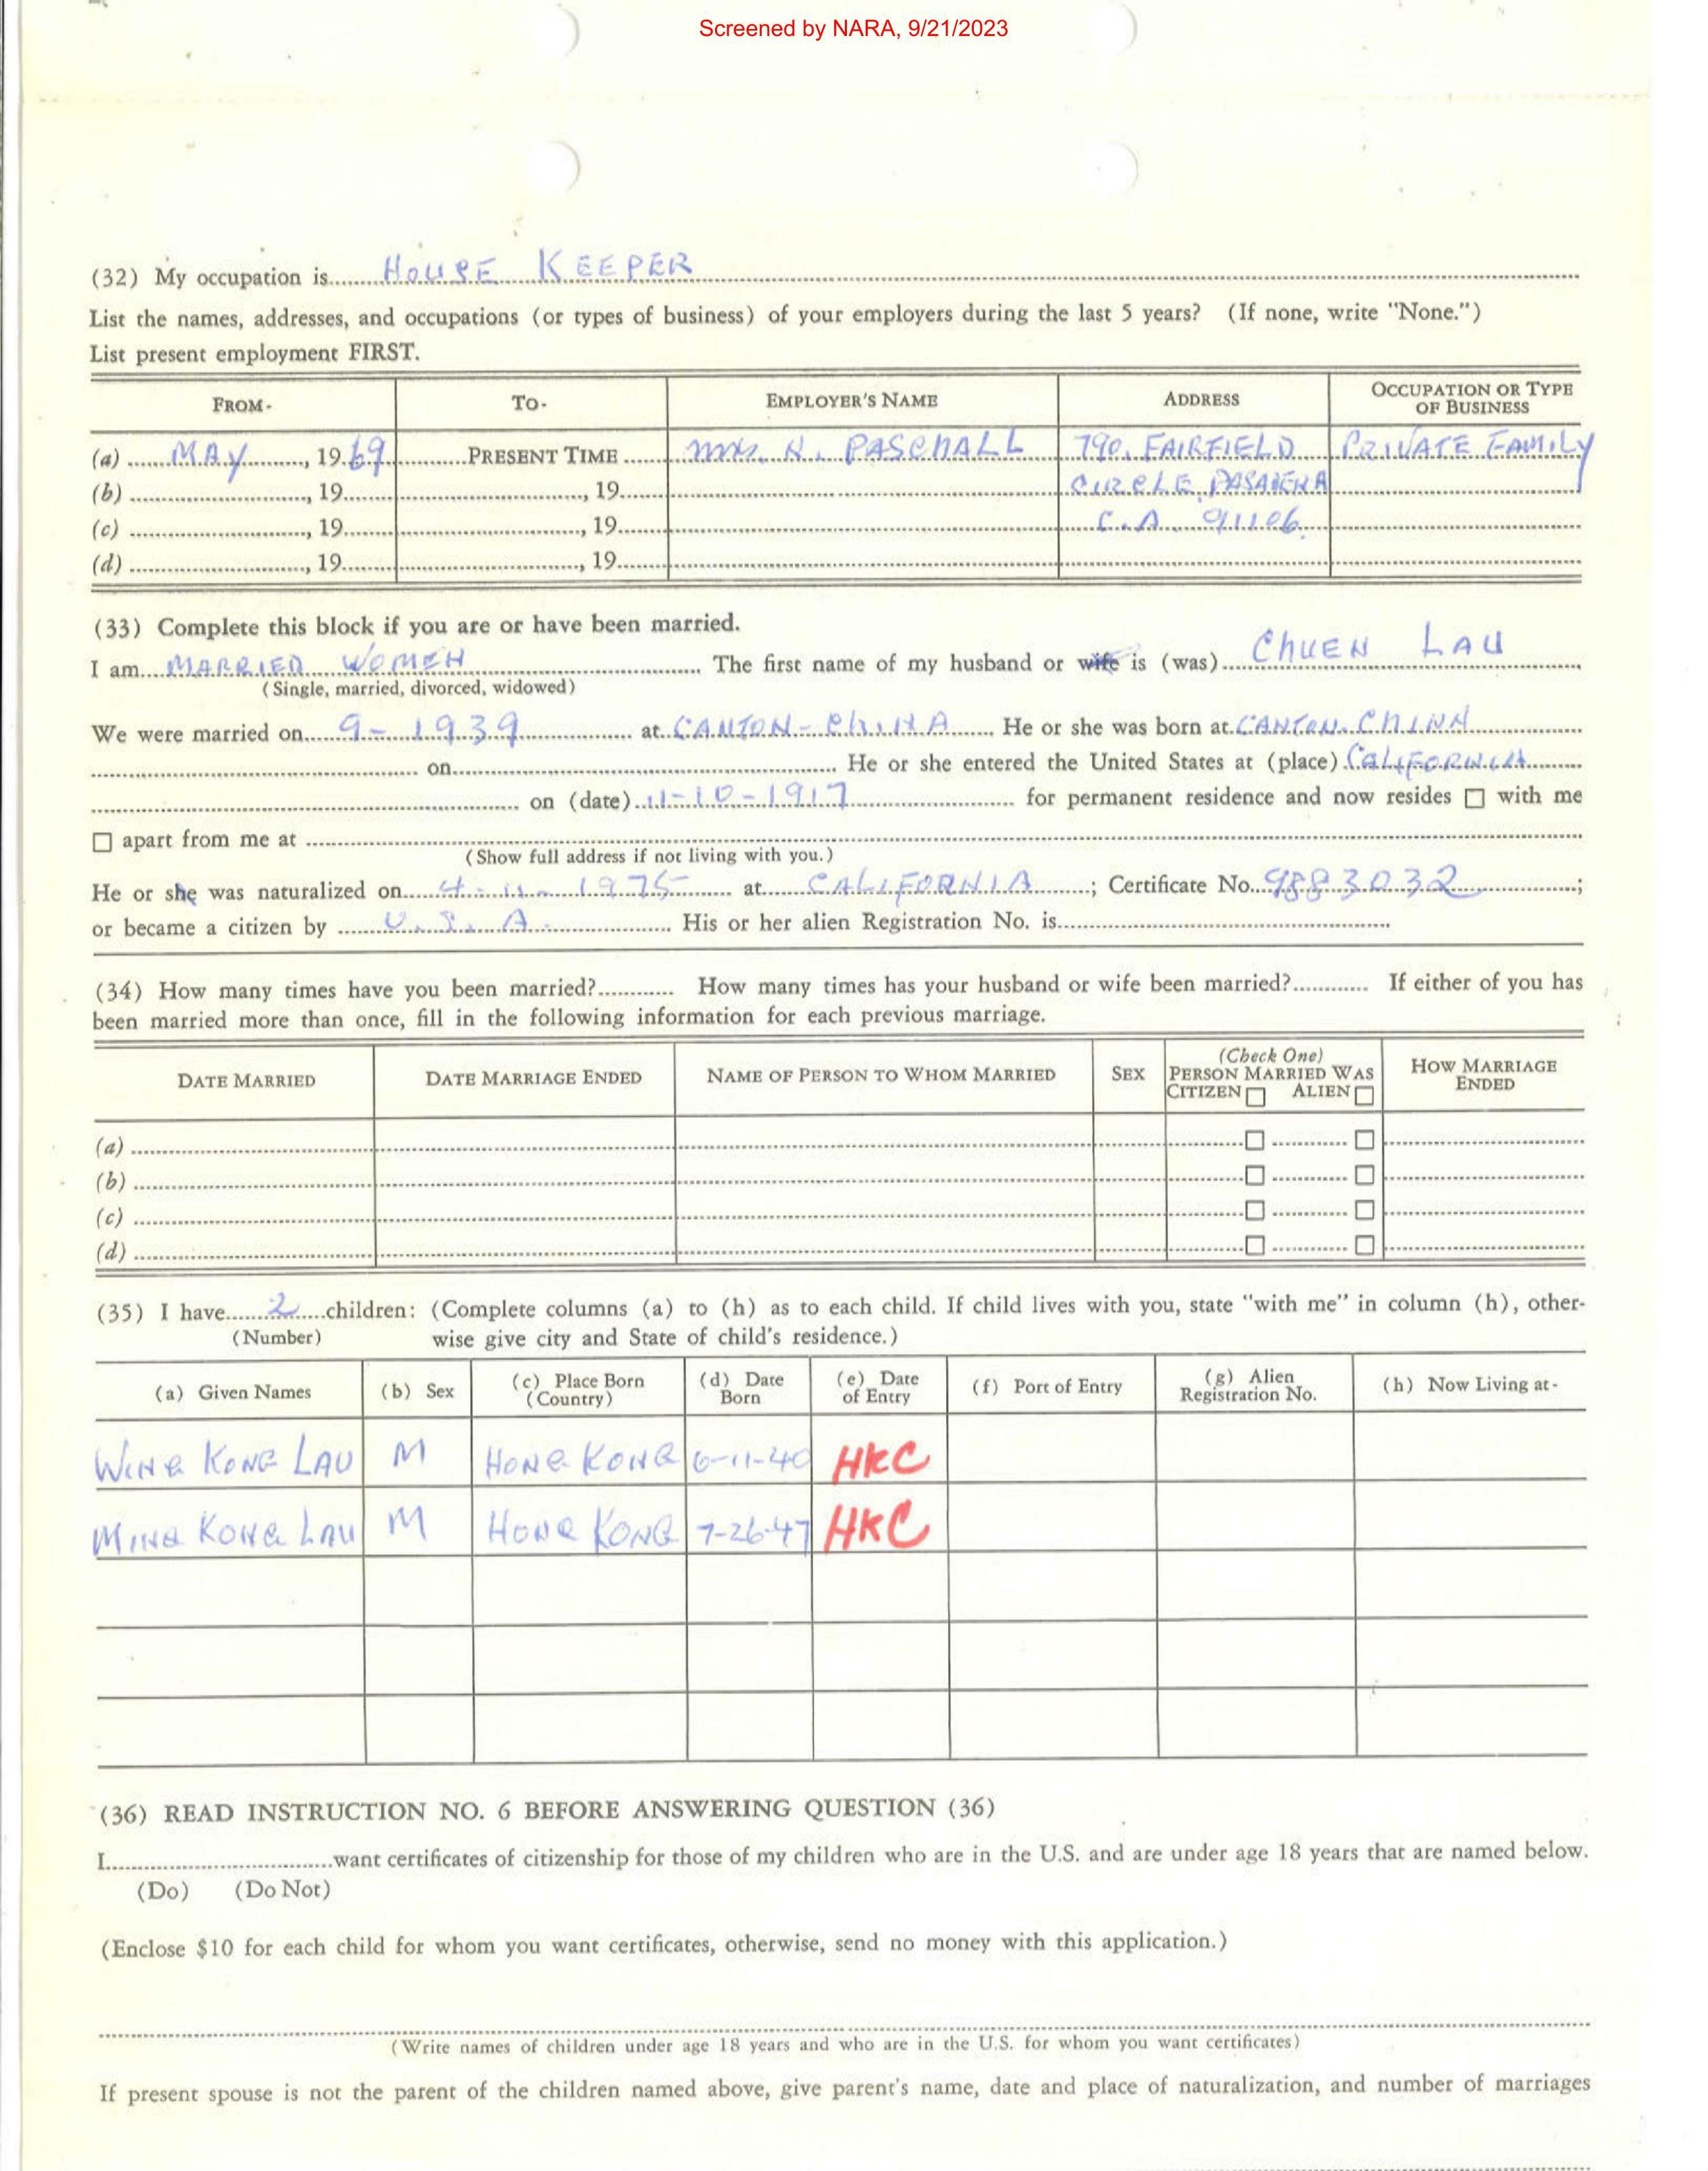 Screened by NARA, 9/21/2023
(32) My occupation is HOUSE KEEPER
List the names, addresses, and occupations (or types of business) of your employers during the last 5 years? (If none, write "None.")
List present employment FIRST.
FROM- TO- EMPLOYER'S NAME ADDRESS OCCUPATION OR TYPE OF BUSINESS
(a) MAY, 19 69 PRESENT TIME MRS. N. PASCHALL 790. FAIRFIELD PRIVATE FAMILY
(b) , 19 , 19 CIRCLE, PASADENA
(c) , 19 , 19 C.A. 91106.
(d) , 19 , 19
(33) Complete this block if you are or have been married.
I am MARRIED WOMEN The first name of my husband or wife is (was) CHUEN LAU
(Single, married, divorced, widowed)
We were married on 9-1939 at CANTON-CHINA He or she was born at CANTON-CHINA
on He or she entered the United States at (place) CALIFORNIA
on (date) 11-10-1917 for permanent residence and now resides ☐ with me
☐ apart from me at
(Show full address if not living with you.)
He or she was naturalized on 4-11-1975 at CALIFORNIA; Certificate No. 9883032;
or became a citizen by U.S.A. His or her alien Registration No. is
(34) How many times have you been married? How many times has your husband or wife been married? If either of you has
been married more than once, fill in the following information for each previous marriage.
DATE MARRIED DATE MARRIAGE ENDED NAME OF PERSON TO WHOM MARRIED SEX (Check One) PERSON MARRIED WAS CITIZEN ☐ ALIEN ☐ HOW MARRIAGE ENDED
(a) ☐ ☐
(b) ☐ ☐
(c) ☐ ☐
(d) ☐ ☐
(35) I have 2 children: (Complete columns (a) to (h) as to each child. If child lives with you, state "with me" in column (h), other-
(Number) wise give city and State of child's residence.)
(a) Given Names (b) Sex (c) Place Born (Country) (d) Date Born (e) Date of Entry (f) Port of Entry (g) Alien Registration No. (h) Now Living at-
WING KONG LAU M HONG KONG 6-11-40 HKC
MING KONG LAU M HONG KONG 7-26-47 HKC
(36) READ INSTRUCTION NO. 6 BEFORE ANSWERING QUESTION (36)
I want certificates of citizenship for those of my children who are in the U.S. and are under age 18 years that are named below.
(Do) (Do Not)
(Enclose $10 for each child for whom you want certificates, otherwise, send no money with this application.)
(Write names of children under age 18 years and who are in the U.S. for whom you want certificates)
If present spouse is not the parent of the children named above, give parent's name, date and place of naturalization, and number of marriages